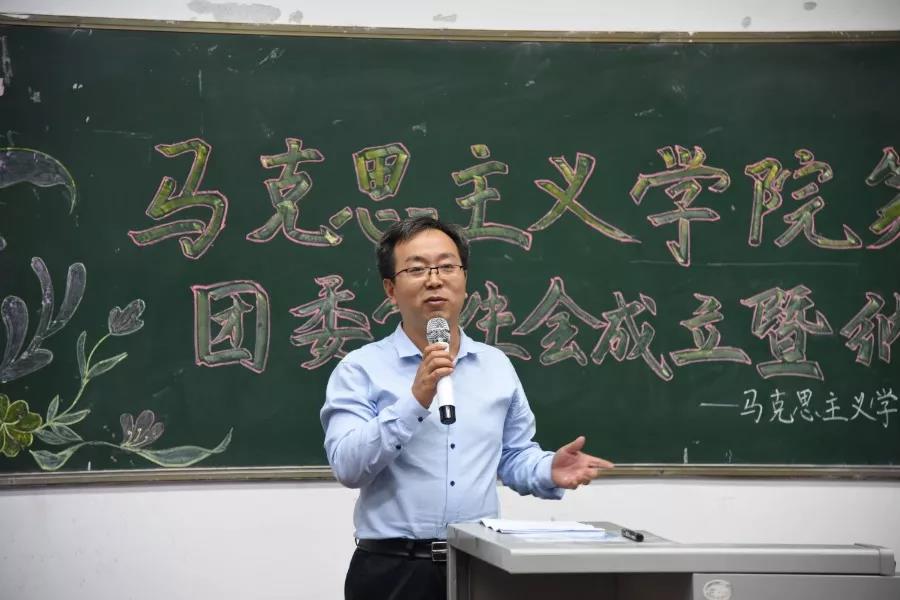 马克思主义学院
团委 会成立暨
—马克思主义学